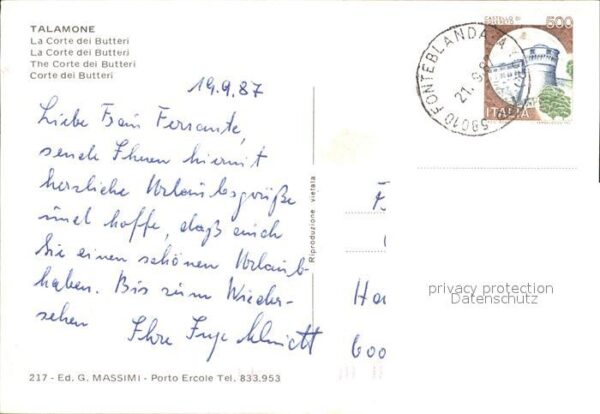 TALAMONE
La Corte dei Butteri
La Corte dei Butteri
The Corte dei Butteri
Corte dei Butteri
19.9.87
Liebe Frau Ferrante,
sende Ihnen hiermit
herzliche Urlaubsgrüße
und hoffe, daß auch
Sie einen schönen Urlaub
haben. Bis zum Wieder-
sehen Ihre Inge Schmitt
217 - Ed. G. MASSIMI - Porto Ercole Tel. 833.953
Riproduzione vietata
58010 FONTEBLANDA
21.9
CASTELLO DI
500
ITALIA
F
Ha
600
privacy protection
Datenschutz